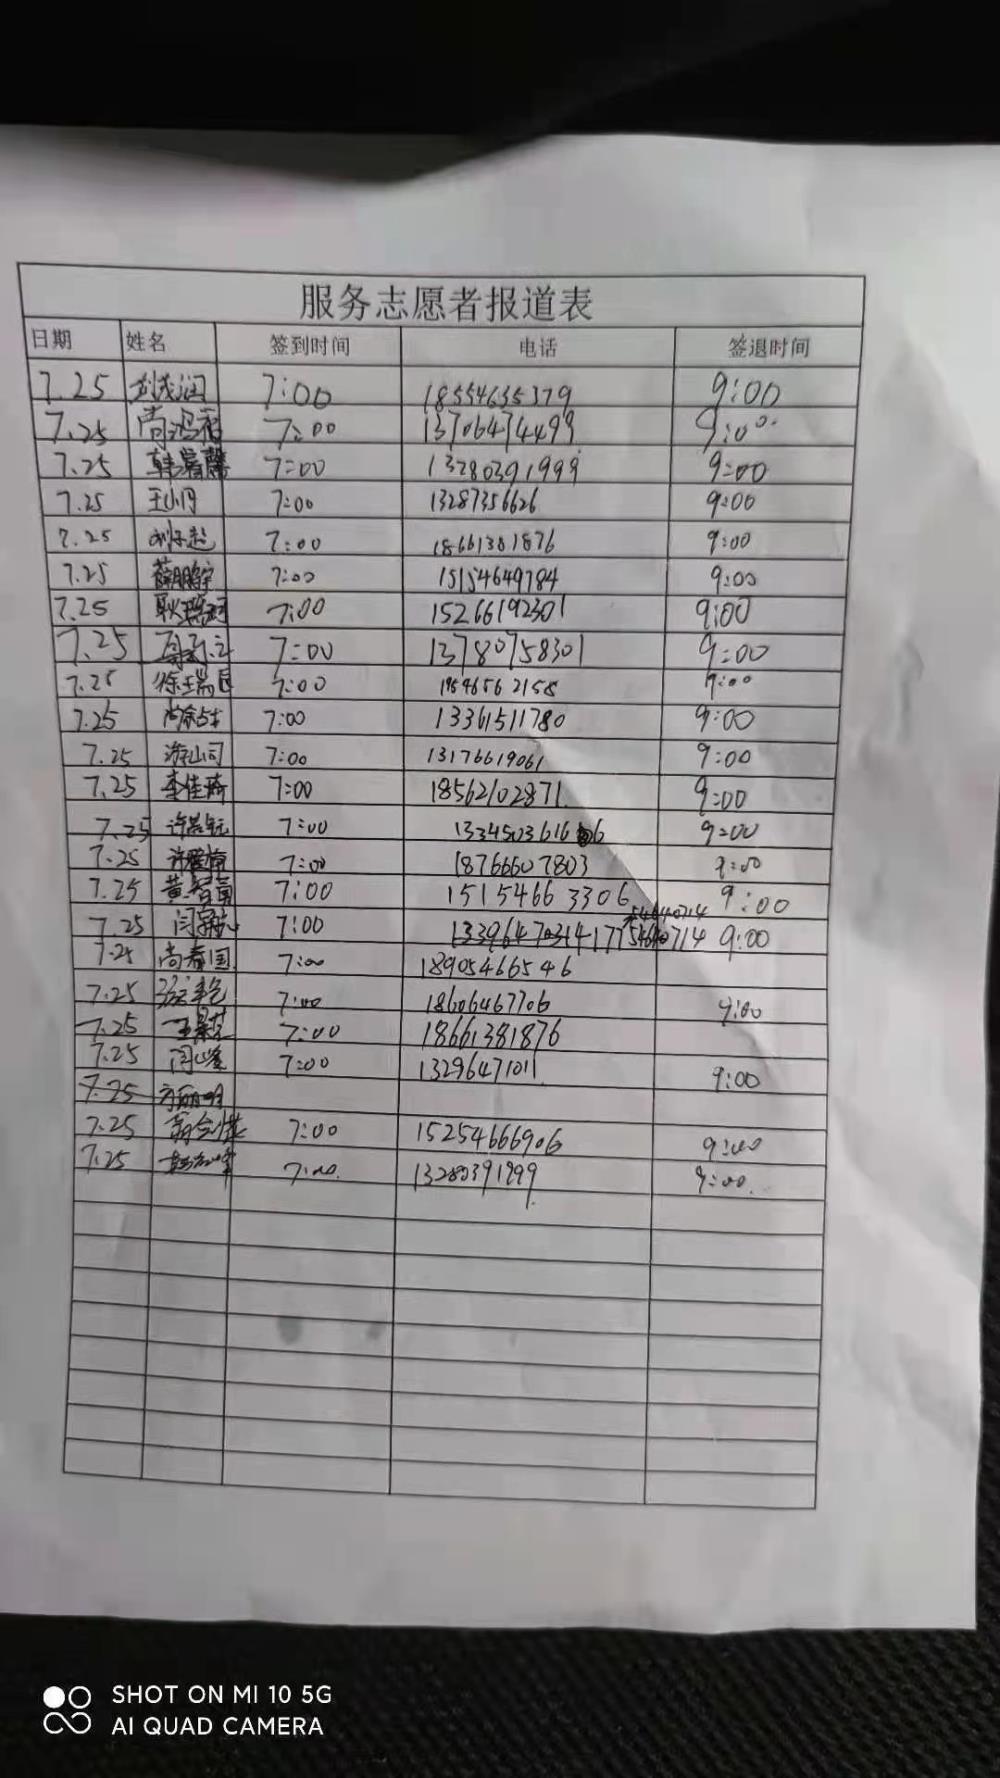 服务志愿者报道表
日期 姓名 签到时间 电话 签退时间
7.25 刘茂润 7:00 18554635379 9:00
7.25 尚鸿 7:00 13706474499 9:00
7.25 韩 馨 7:00 13280391999 9:00
7.25 王山丹 7:00 13287356626 9:00
7.25 刘乐起 7:00 18661381876 9:00
7.25 薛鹏宇 7:00 15154649784 9:00
7.25 耿瑞 7:00 15266192301 9:00
7.25 7:00 13780758301 9:00
7.25 徐瑞 7:00 19546562158 9:00
7.25 尚余占 7:00 13361511780 9:00
7.25 游山司 7:00 13176619061 9:00
7.25 李佳琦 7:00 18562102871 9:00
7.25 许 7:00 1334503616 6 9:00
7.25 许 7:00 18766607803 9:00
7.25 黄智勇 7:00 15154663306 9:00
7.25 闫 7:00 13396470314 17754640714 9:00
7.25 尚春国 7:00 18905466546
7.25 7:00 18606467706 9:00
7.25 王景 7:00 18661381876
7.25 闫峰 7:00 13296471011 9:00
7.25 方丽明
7.25 7:00 15254666906 9:00
7.25 峰 7:00 13280391999 9:00
SHOT ON MI 10 5G
AI QUAD CAMERA